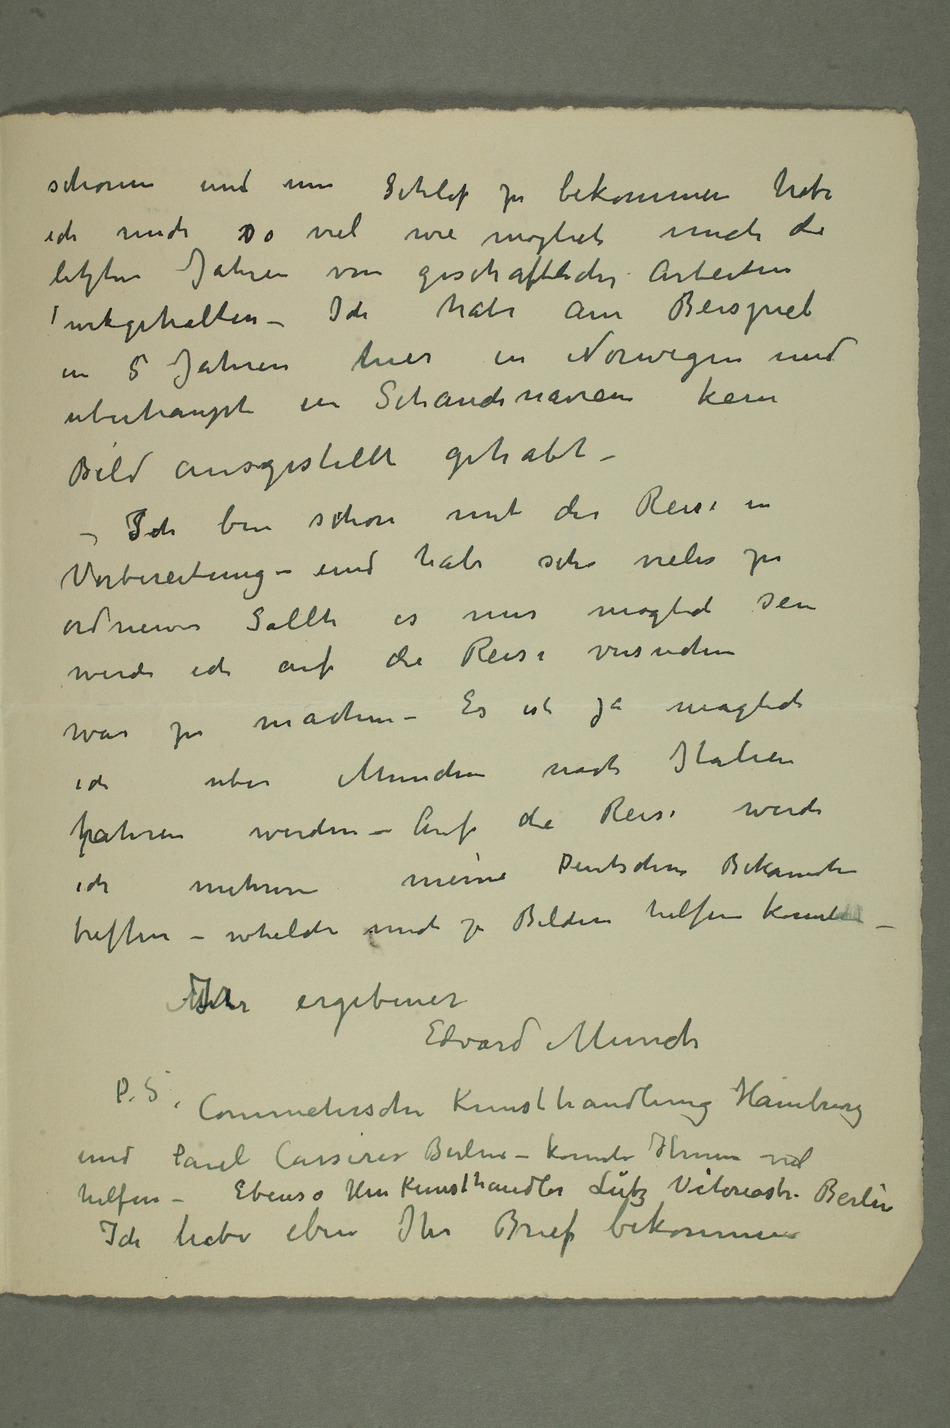 schonen und um Schlaf zu bekommen habe
ich mich so viel wie moglich mich die
letzten Jahren von geschaftlicher Arbeiten
urkgehalten – Ich habe am Beispiel
in 5 Jahren hier in Norwegen und
uberhaupt in Schandinavien kein
Bild ausgestellt gehabt –
– Ich bin schon mit der Reise in
Vorbereitung – und habe sehr vieles zu
ordnen Sollte es mir moglich sein
werde ich auf die Reise versuchen
was zu machen – Es ist ja moglich
ich uber Munchen nach Italien
fahren werden – Auf die Reise werde
ich mehrere meine Deutschen Bekannten
treffen – whelche mich zu Bildern helfen konnten –
Ihr ergebener
Edvard Munch
P.S. Commetersche Kunsthandlung Hamburg
und Paul Cassirer Berlin – konnte Ihnen viel
helfen – Ebenso Hrn Kunsthandler Lütz Vitoriastr. Berlin
Ich habe eben Ihr Brief bekommen